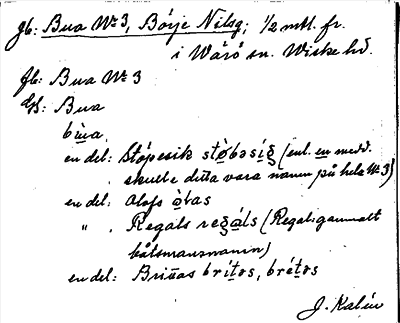 Jb: Bua Nº 3, Börje Nilsg; 1/2 mtl. fr.
i Värö sn. Viske hd.
Jb: Bua Nº 3
Gs: Bua
bùa
en del: Stöpesik stö̀bəsíg (enl. en medd.
skulle detta vara namn på hela Nº 3)
en del: Olofs òlas
" . Regals regáls (Regal: gammalt
båtsmansnamn)
en del: Brittas brítəs, brétəs
J. Kalén